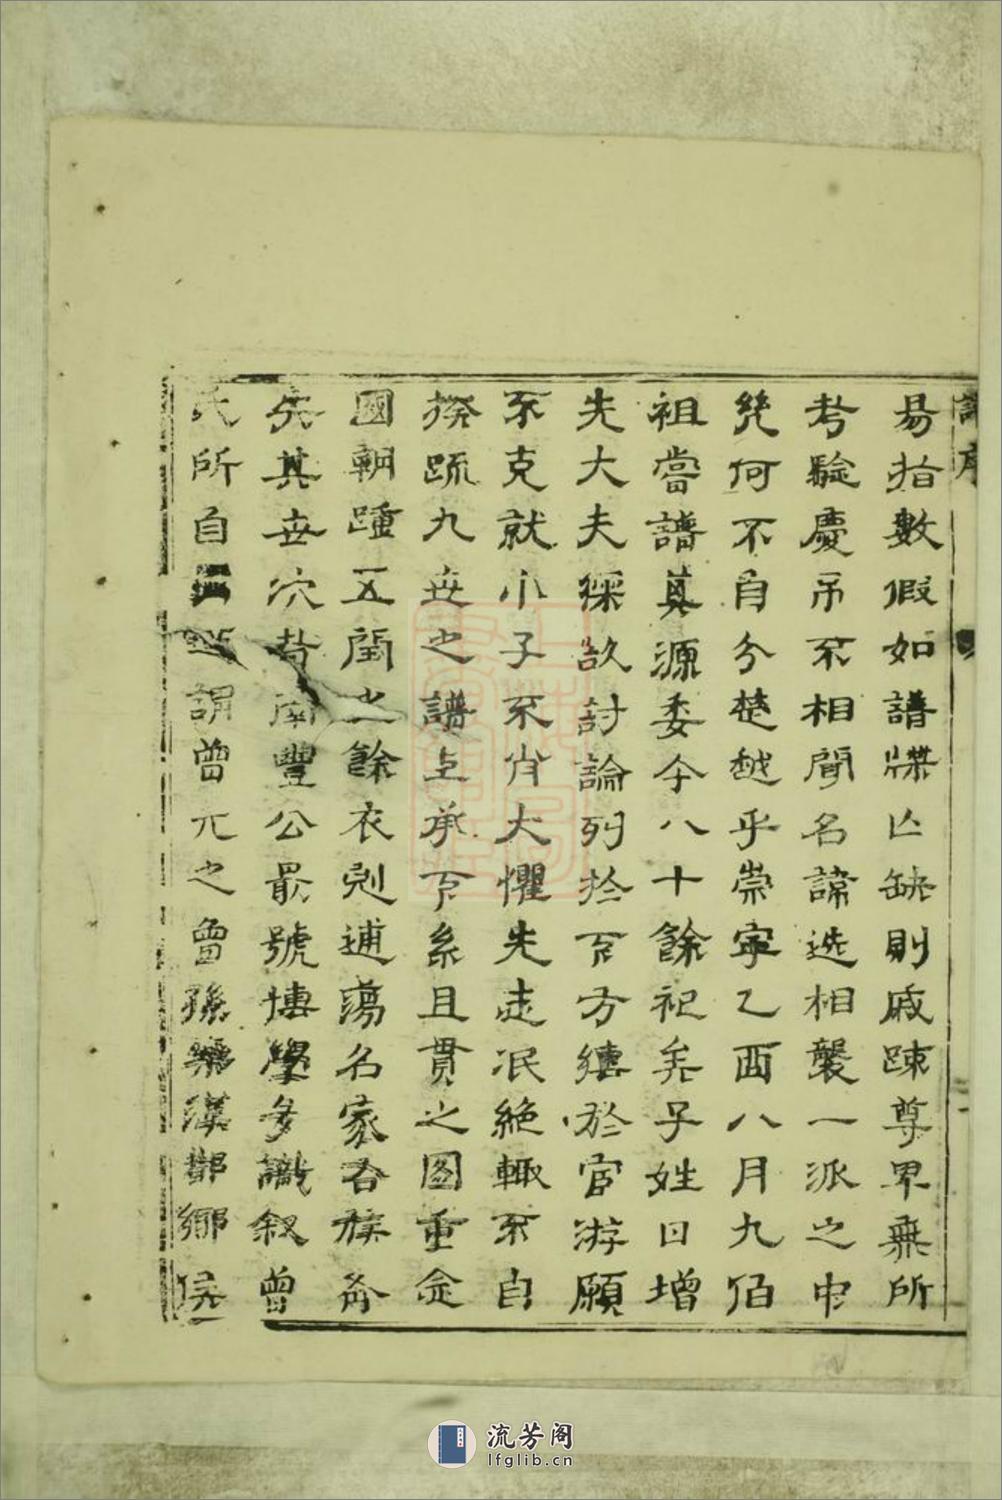 譜序
易指數假如譜牒亾缺則戚踈尊卑無所
考驗慶吊不相聞名諱迭相襲一派之中
幾何不自分楚越乎崇寧乙酉八月九伯
祖嘗譜其源委今八十餘祀矣子姓日增
先大夫採故討論列於下方纏於官游願
不克就小子不肖大懼先志泯絶輙不自
揆疏九世之譜上承下系且貫之圖重念
國朝踵五閏之餘衣冠逋蕩名家右族希
失其世穴昔南豐公最號博學多識叙曾
氏所自謂曾兀之曾孫樂漢都鄉侯
流芳阁
lfglib.cn